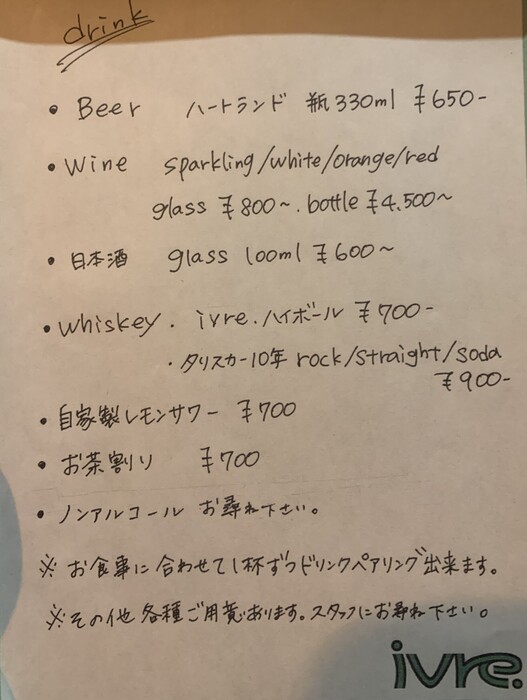 drink
• Beer ハートランド 瓶 330ml ¥650-
• Wine sparkling/white/orange/red
glass ¥800~. bottle ¥4,500~
• 日本酒 glass 100ml ¥600~
• whiskey. ivre.ハイボール ¥700-
・タリスカー10年 rock/straight/soda
¥900-
• 自家製レモンサワー ¥700
• お茶割り ¥700
• ノンアルコール お尋ね下さい。
※ お食事に合わせて1杯ずつドリンクペアリング出来ます。
※その他各種ご用意あります。スタッフにお尋ね下さい。
ivre.